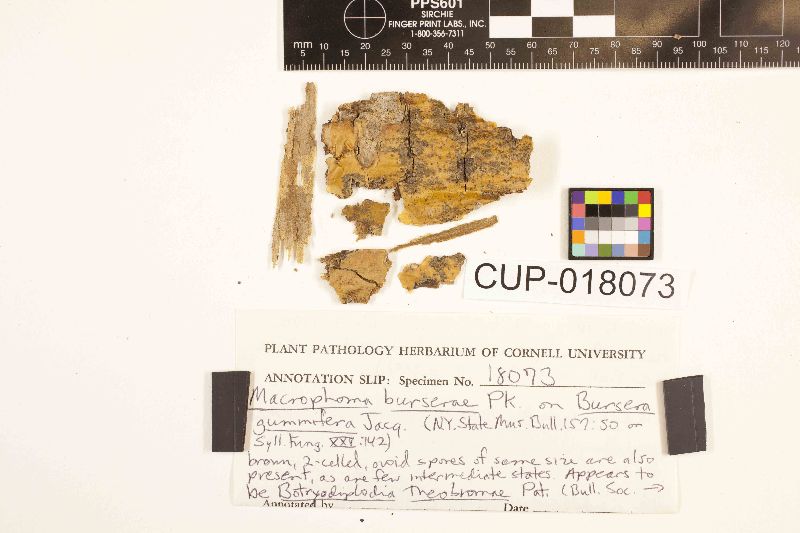 PPS601
SIRCHIE
FINGER PRINT LABS., INC.
1-800-356-7311
mm 5 10 15 20 25 30 35 40 45 50 55 60 65 70 75 80 85 90 95 100 105 110 115 120
CUP-018073
PLANT PATHOLOGY HERBARIUM OF CORNELL UNIVERSITY
ANNOTATION SLIP: Specimen No. 18073
Macrophoma burserae Pk. on Bursera
gummifera Jacq. (NY. State Mus. Bull. 157:50 or
Syll. Fung. XXV:142)
brown, 2-celled, ovoid spores of same size are also
present, as are few intermediate states. Appears to
be Botryodiplodia Theobromae Pat. (Bull. Soc. →
Annotated by Date